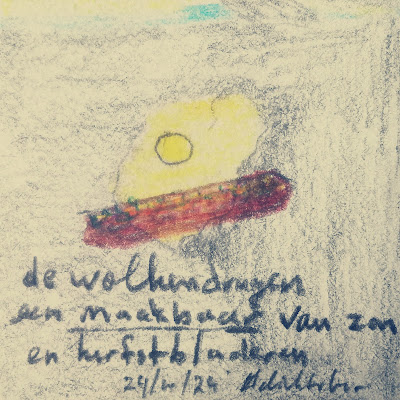 de wolkendragen
een maakbaar van zon
en herfstbladeren